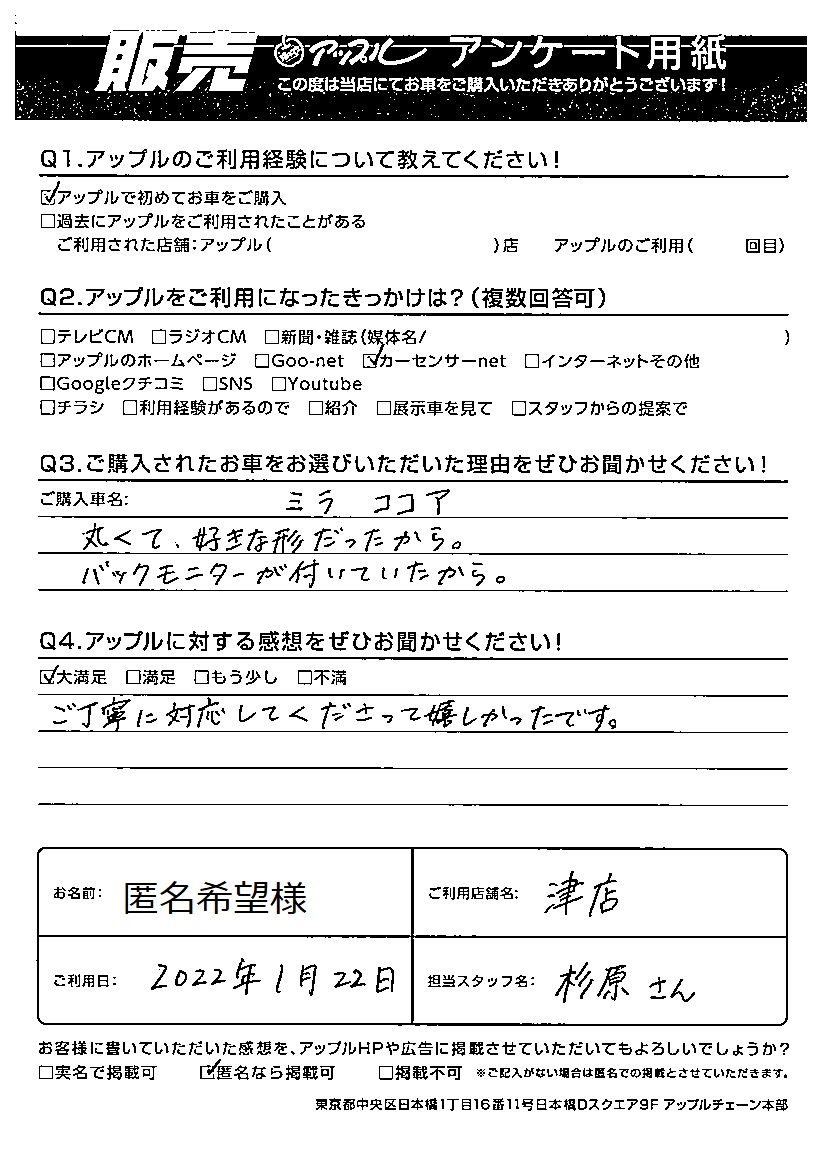 販売 アップル アンケート用紙
この度は当店にてお車をご購入いただきありがとうございます!
Q1.アップルのご利用経験について教えてください!
☑アップルで初めてお車をご購入
□過去にアップルをご利用されたことがある
ご利用された店舗:アップル( )店 アップルのご利用( 回目)
Q2.アップルをご利用になったきっかけは?(複数回答可)
□テレビCM □ラジオCM □新聞・雑誌(媒体名/ )
□アップルのホームページ □Goo-net ☑カーセンサーnet □インターネットその他
□Googleクチコミ □SNS □Youtube
□チラシ □利用経験があるので □紹介 □展示車を見て □スタッフからの提案で
Q3.ご購入されたお車をお選びいただいた理由をぜひお聞かせください!
ご購入車名: ミラ ココア
丸くて、好きな形だったから。
バックモニターが付いていたから。
Q4.アップルに対する感想をぜひお聞かせください!
☑大満足 □満足 □もう少し □不満
ご丁寧に対応してくださって嬉しかったです。
お名前: 匿名希望様 ご利用店舗名: 津店
ご利用日: 2022年1月22日 担当スタッフ名: 杉原さん
お客様に書いていただいた感想を、アップルHPや広告に掲載させていただいてもよろしいでしょうか?
□実名で掲載可 ☑匿名なら掲載可 □掲載不可 ※ご記入がない場合は匿名での掲載とさせていただきます。
東京都中央区日本橋1丁目16番11号日本橋Dスクエア9F アップルチェーン本部